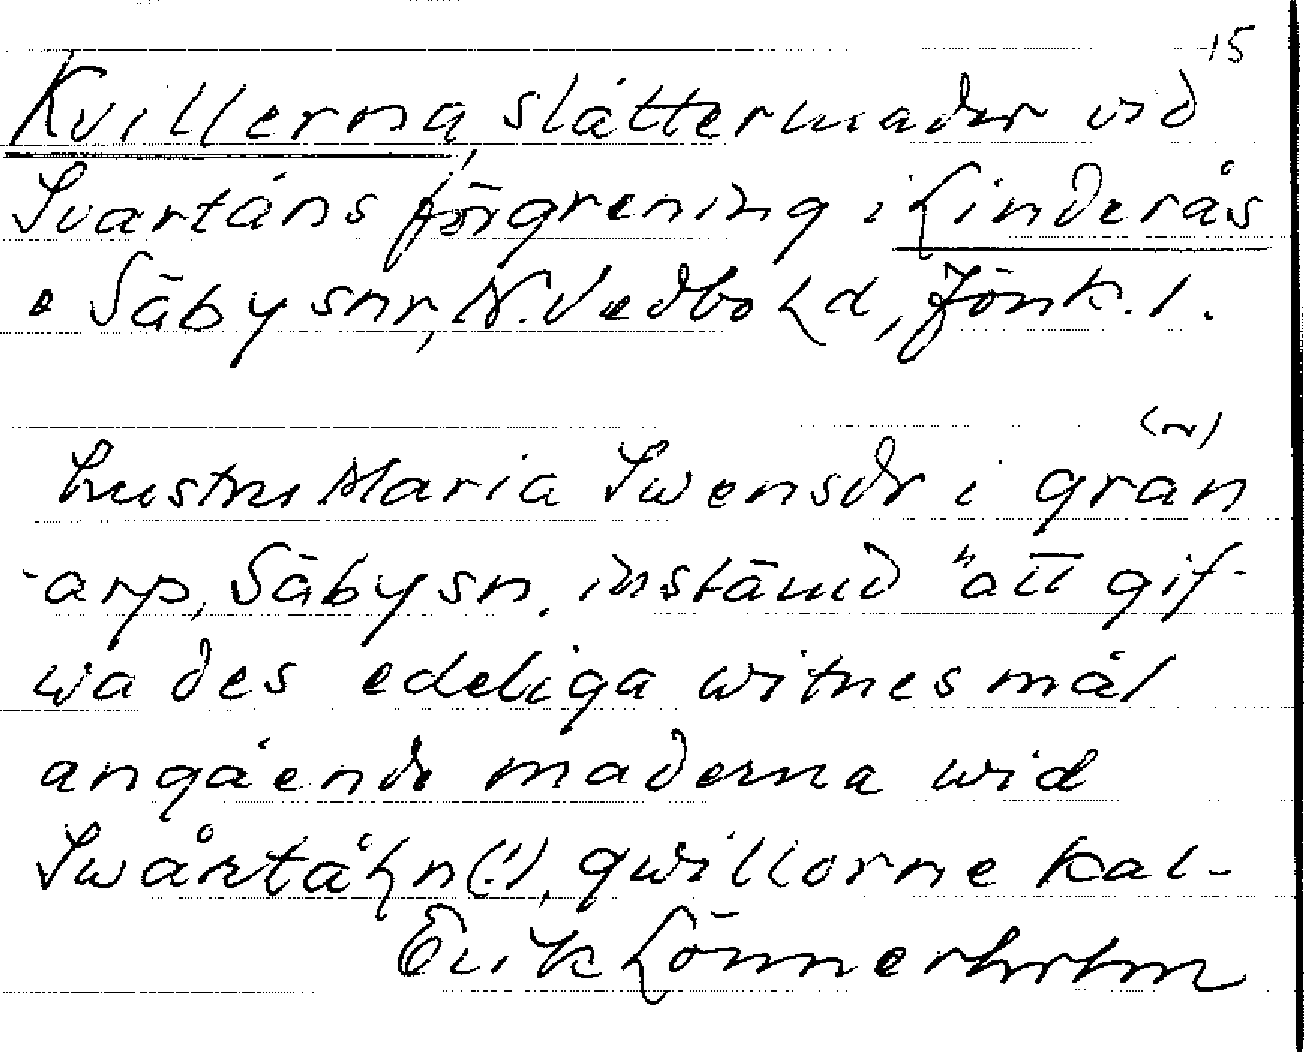 15
Kvillerna, slåttermader vid
Svartåns förgrening i Linderås
o Säby snr, N. Vedbo hd, Jönk. l.
(~)
hustru Maria Swensdr i grän
-arp, Säby sn. instämd "att gif-
wa des edeliga witnesmål
angående maderna wid
Swårtåhn(!), qwillorne kal-
Erik Lönnerholm